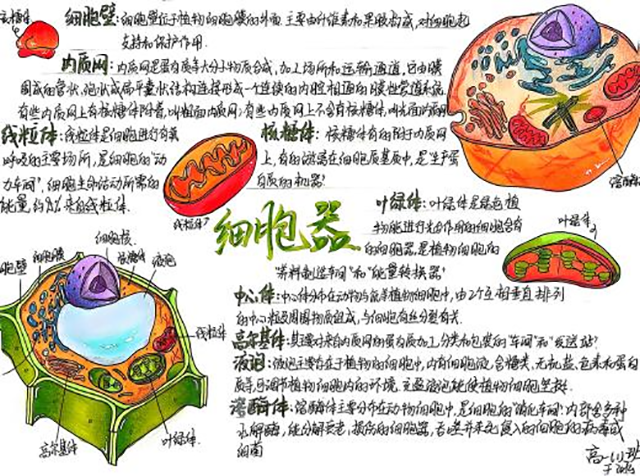 核糖体
细胞壁:细胞壁位于植物细胞细胞膜的外面,主要由纤维素和果胶构成,对细胞起
支持和保护作用.
内质网:内质网是蛋白质等大分子物质合成,加工场所和运输通道.它由膜
围成的管状、泡状或扁平囊状结构连接形成一个连续的内腔相通的膜性管道系统
有些内质网上有核糖体附着,叫粗面内质网;有些内质网上不含有核糖体,叫光面内质网
线粒体:线粒体是细胞进行有氧
呼吸的主要场所,是细胞的"动
力车间",细胞生命活动所需的
能量,约95%来自线粒体.
核糖体:核糖体有的附于内质网
上,有的游离在细胞质基质中,是生产蛋
白质的机器"
线粒体
溶酶体
细胞器
叶绿体:叶绿体是绿色植
物能进行光合作用的细胞含有
的细胞器,是植物细胞的
"养料制造车间"和"能量转换器"
叶绿体
中心体:中心体分布在动物与低等植物细胞中,由2个互相垂直排列
的中心粒及周围物质组成,与细胞有丝分裂有关.
高尔基体:其主要对来自内质网的蛋白质加工,分类和包装的"车间"和"发送站"
液泡:液泡主要存在于植物的细胞中,内有细胞液,含糖类、无机盐、色素和蛋白
质等,可调节植物细胞内的环境,充盈液泡能使植物细胞坚挺.
溶酶体:溶酶体主要分布在动物细胞中,是细胞的"消化车间"内部含多种
水解酶,能分解衰老、损伤的细胞器,吞噬并杀死侵入的细胞的病毒或
细菌
细胞核
细胞膜
核糖体
液泡
细胞壁
线粒体
高尔基体
叶绿体